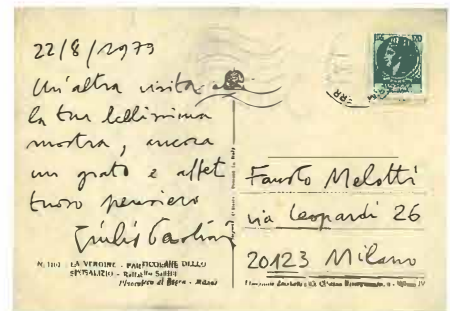 22/8/1979
Un'altra visita alla
la tua bellissima
mostra, ancora
un grato e affet
tuoso pensiero
Giulio Paolini
N. 1101 - LA VERGINE - PARTICOLARE DELLO
SPOSALIZIO - Raffaello Sanzio
Pinacoteca di Brera - Milano
Fausto Melotti
via Leopardi 26
20123 Milano